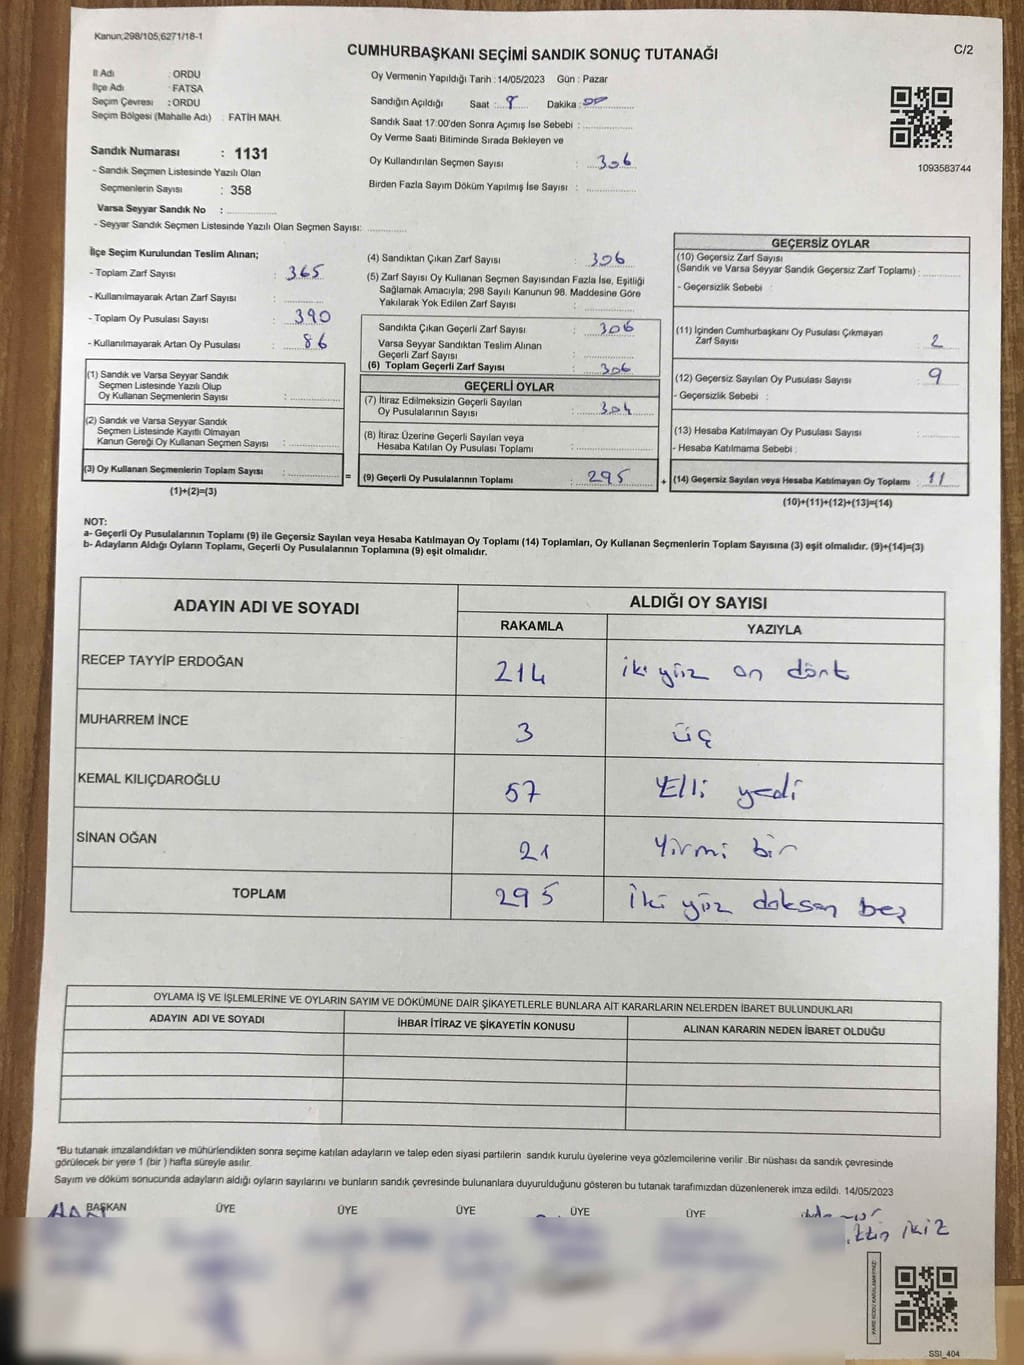 Kanun;298/105;6271/18-1
CUMHURBAŞKANI SEÇİMİ SANDIK SONUÇ TUTANAĞI
C/2
İl Adı : ORDU
İlçe Adı : FATSA
Seçim Çevresi : ORDU
Seçim Bölgesi (Mahalle Adı) : FATİH MAH.
Sandık Numarası : 1131
- Sandık Seçmen Listesinde Yazılı Olan
Seçmenlerin Sayısı : 358
Varsa Seyyar Sandık No :
- Seyyar Sandık Seçmen Listesinde Yazılı Olan Seçmen Sayısı:
Oy Vermenin Yapıldığı Tarih : 14/05/2023 Gün : Pazar
Sandığın Açıldığı Saat : 8 Dakika : 00
Sandık Saat 17:00'den Sonra Açımış İse Sebebi :
Oy Verme Saati Bitiminde Sırada Bekleyen ve
Oy Kullandırılan Seçmen Sayısı : 306
Birden Fazla Sayım Döküm Yapılmış İse Sayısı :
1093583744
İlçe Seçim Kurulundan Teslim Alınan;
- Toplam Zarf Sayısı : 365
- Kullanılmayarak Artan Zarf Sayısı :
- Toplam Oy Pusulası Sayısı : 390
- Kullanılmayarak Artan Oy Pusulası : 86
(1) Sandık ve Varsa Seyyar Sandık
Seçmen Listesinde Yazılı Olup
Oy Kullanan Seçmenlerin Sayısı :
(2) Sandık ve Varsa Seyyar Sandık
Seçmen Listesinde Kayıtlı Olmayan
Kanun Gereği Oy Kullanan Seçmen Sayısı :
(3) Oy Kullanan Seçmenlerin Toplam Sayısı : =
(1)+(2)=(3)
(4) Sandıktan Çıkan Zarf Sayısı : 306
(5) Zarf Sayısı Oy Kullanan Seçmen Sayısından Fazla İse, Eşitliği
Sağlamak Amacıyla; 298 Sayılı Kanunun 98. Maddesine Göre
Yakılarak Yok Edilen Zarf Sayısı :
Sandıkta Çıkan Geçerli Zarf Sayısı : 306
Varsa Seyyar Sandıktan Teslim Alınan
Geçerli Zarf Sayısı :
(6) Toplam Geçerli Zarf Sayısı : 306
GEÇERLİ OYLAR
(7) İtiraz Edilmeksizin Geçerli Sayılan
Oy Pusulalarının Sayısı : 304
(8) İtiraz Üzerine Geçerli Sayılan veya
Hesaba Katılan Oy Pusulası Toplamı :
(9) Geçerli Oy Pusulalarının Toplamı : 295 +
GEÇERSİZ OYLAR
(10) Geçersiz Zarf Sayısı
(Sandık ve Varsa Seyyar Sandık Geçersiz Zarf Toplamı) :
- Geçersizlik Sebebi :
(11) İçinden Cumhurbaşkanı Oy Pusulası Çıkmayan
Zarf Sayısı : 2
(12) Geçersiz Sayılan Oy Pusulası Sayısı : 9
- Geçersizlik Sebebi :
(13) Hesaba Katılmayan Oy Pusulası Sayısı :
- Hesaba Katılmama Sebebi :
(14) Geçersiz Sayılan veya Hesaba Katılmayan Oy Toplamı : 11
(10)+(11)+(12)+(13)=(14)
NOT:
a- Geçerli Oy Pusulalarının Toplamı (9) ile Geçersiz Sayılan veya Hesaba Katılmayan Oy Toplamı (14) Toplamları, Oy Kullanan Seçmenlerin Toplam Sayısına (3) eşit olmalıdır. (9)+(14)=(3)
b- Adayların Aldığı Oyların Toplamı, Geçerli Oy Pusulalarının Toplamına (9) eşit olmalıdır.
ADAYIN ADI VE SOYADI ALDIĞI OY SAYISI
RAKAMLA YAZIYLA
RECEP TAYYİP ERDOĞAN 214 iki yüz on dört
MUHARREM İNCE 3 üç
KEMAL KILIÇDAROĞLU 57 Elli yedi
SİNAN OĞAN 21 Yirmi bir
TOPLAM 295 İki yüz doksan beş
OYLAMA İŞ VE İŞLEMLERİNE VE OYLARIN SAYIM VE DÖKÜMÜNE DAİR ŞİKAYETLERLE BUNLARA AİT KARARLARIN NELERDEN İBARET BULUNDUKLARI
ADAYIN ADI VE SOYADI İHBAR İTİRAZ VE ŞİKAYETİN KONUSU ALINAN KARARIN NEDEN İBARET OLDUĞU
*Bu tutanak imzalandıktan ve mühürlendikten sonra seçime katılan adayların ve talep eden siyasi partilerin sandık kurulu üyelerine veya gözlemcilerine verilir. Bir nüshası da sandık çevresinde
görülecek bir yere 1 (bir ) hafta süreyle asılır.
Sayım ve döküm sonucunda adayların aldığı oyların sayılarını ve bunların sandık çevresinde bulunanlara duyurulduğunu gösteren bu tutanak tarafımızdan düzenlenerek imza edildi. 14/05/2023
BAŞKAN ÜYE ÜYE ÜYE ÜYE ÜYE
ikiz
SSI_404